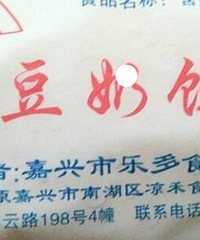 食品名称：
豆奶饮
者:嘉兴市乐多食
原嘉兴市南湖区凉禾食
云路198号4幢 联系电话